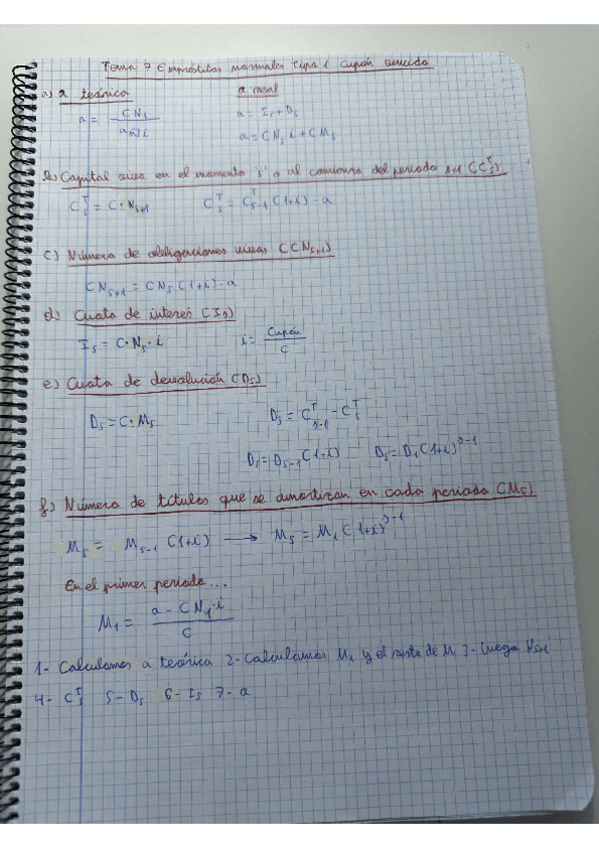 Tema 7 Empréstitos normales Tipo 1 Cupón vencido
a) a teórica a real
a = CN₁ / a_n⌉i a = Is + Ds
a = CNs i + CMs
b) Capital vivo en el momento 's' o al comienzo del periodo s+1 (C_s^T)
C_s^T = C · N_{s+1} C_s^T = C_{s-1}^T (1+i) - a
c) Número de obligaciones vivas (CN_{s+1})
CN_{s+1} = CN_s · (1+i) - a
d) Cuota de interés (Is)
Is = C · Ns · i i = Cupón / C
e) Cuota de devolución (Ds)
Ds = C · Ms Ds = C_{s-1}^T - C_s^T
Ds = D_{s-1} (1+i) Ds = D₁ (1+i)^{s-1}
f) Número de títulos que se amortizan en cada periodo (Ms)
Ms = M_{s-1} (1+i) → Ms = M₁ (1+i)^{s-1}
En el primer periodo...
M₁ = a - CN₁ · i / C
1- Calculamos a teórica 2- Calculamos M₁ y el resto de M 3- luego N_{s+1}
4- C_s^T 5- Ds 6- Is 7- a